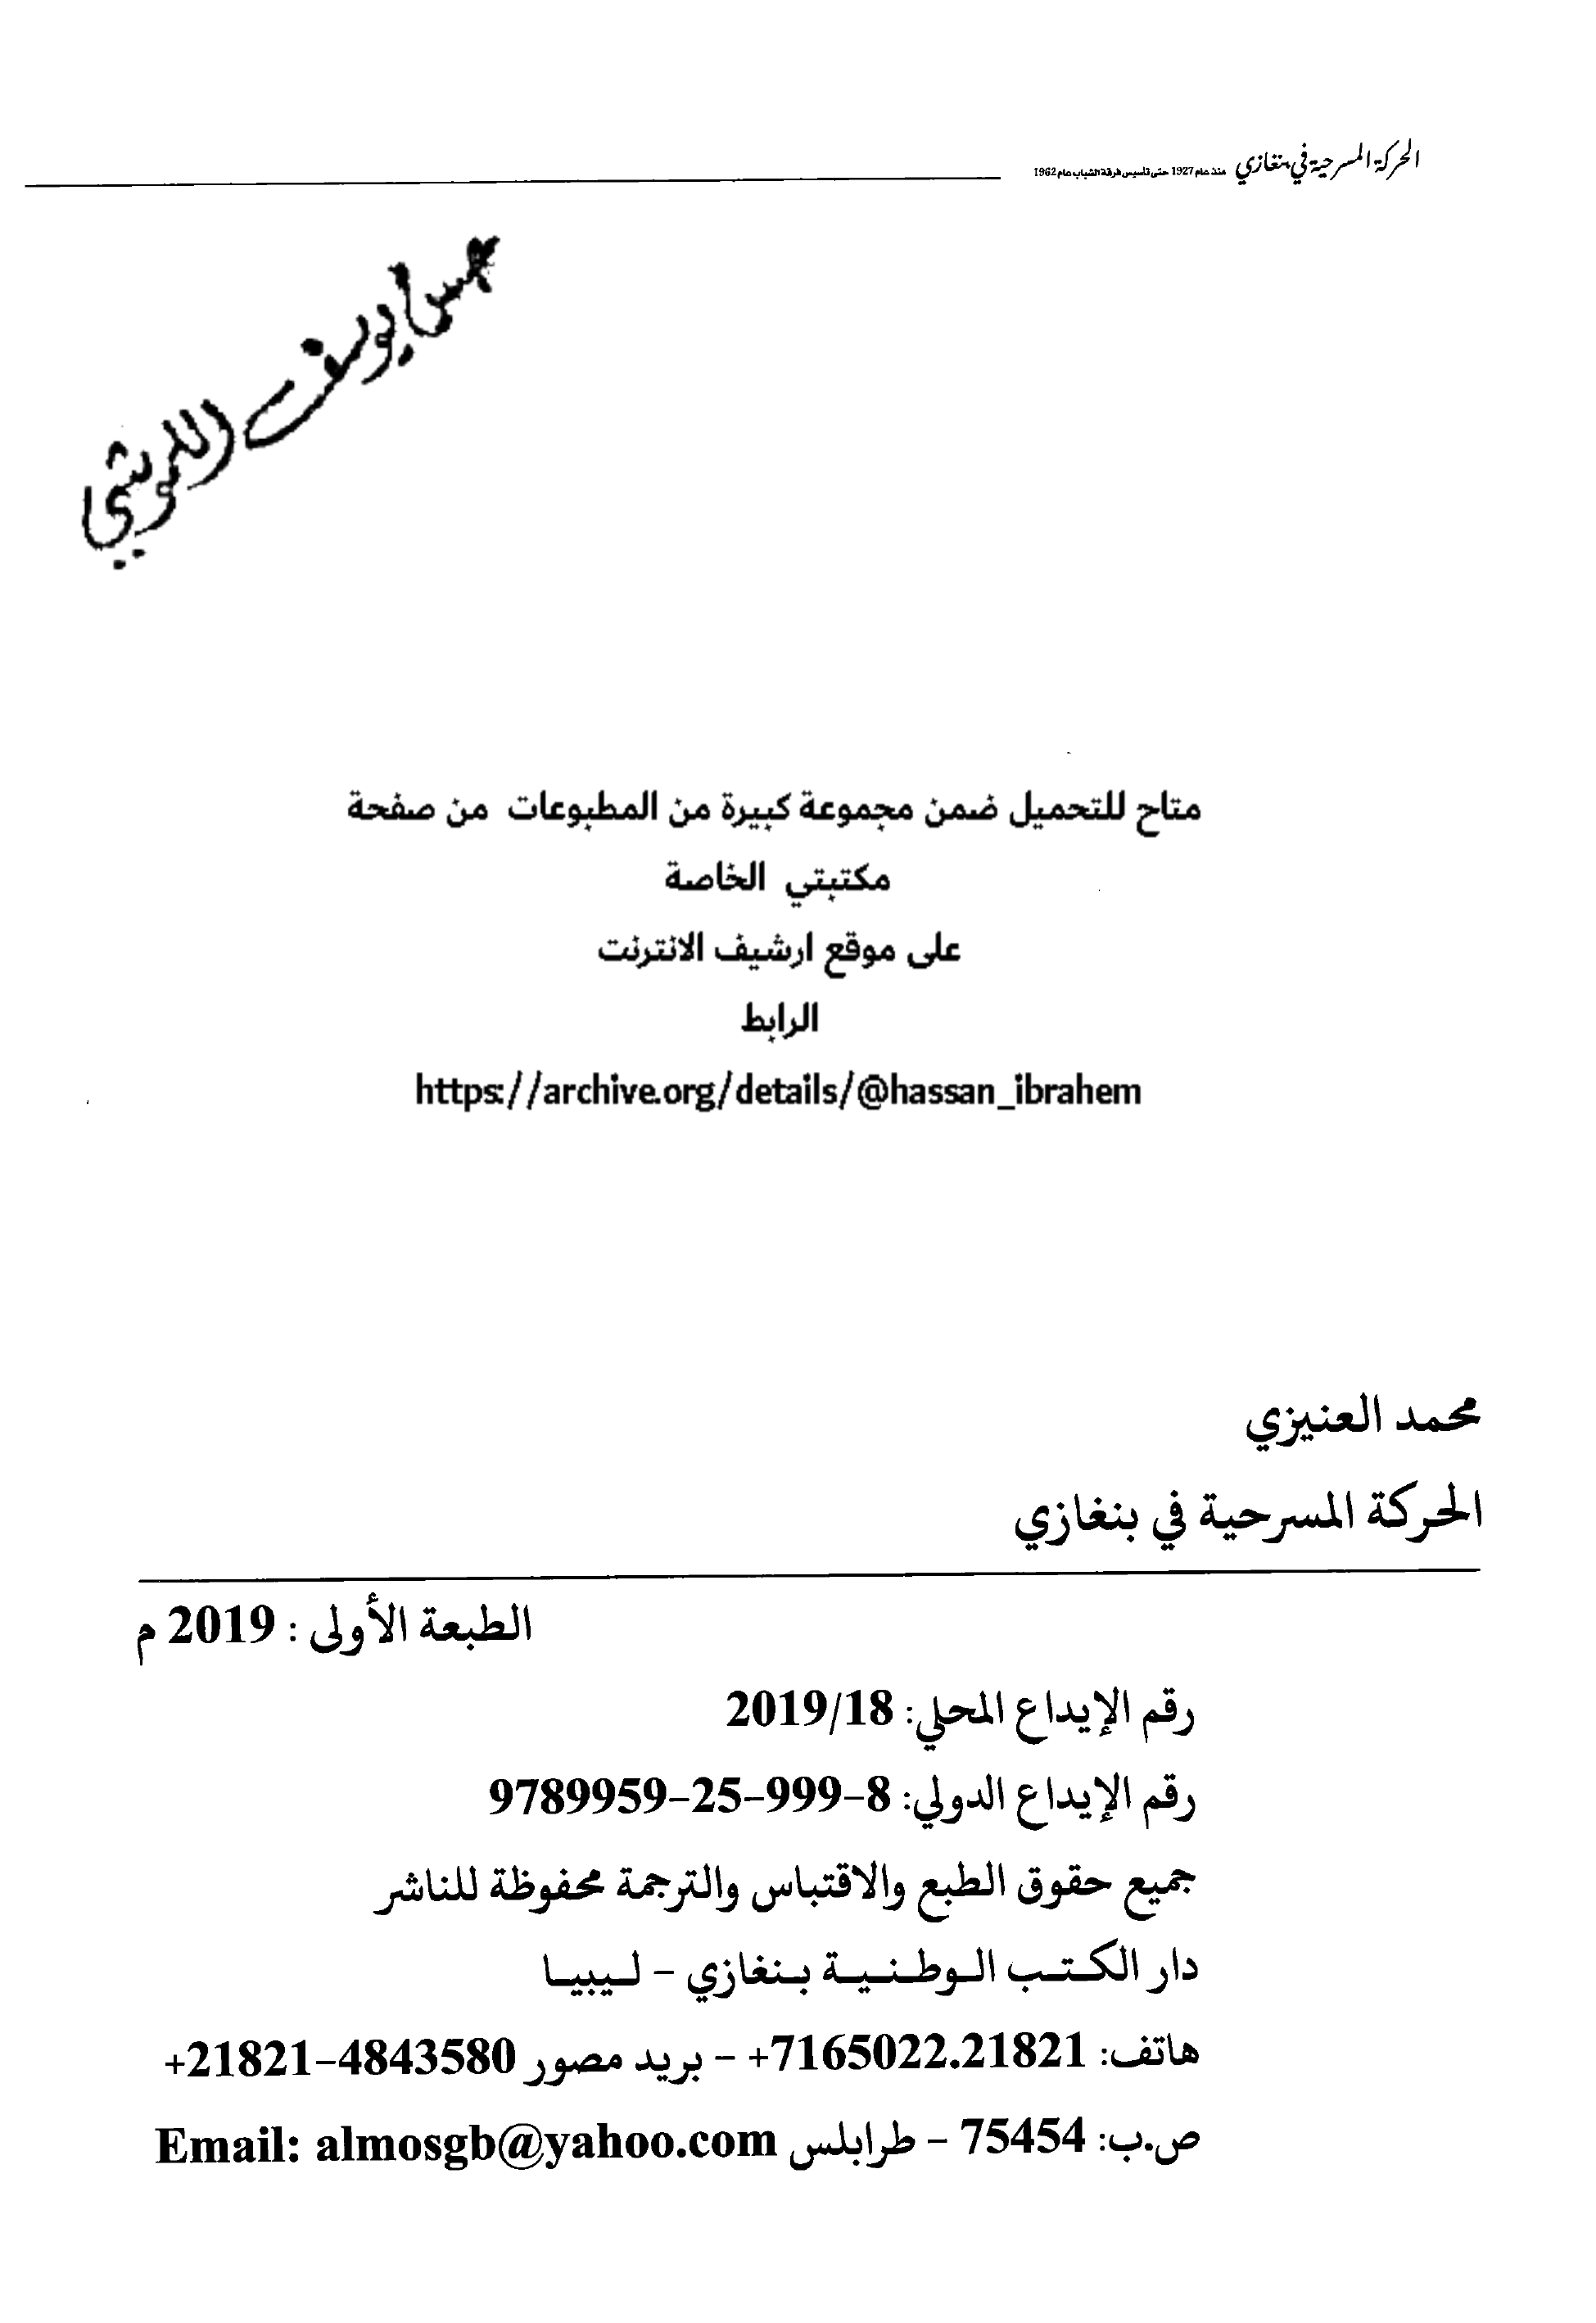 الحركة المسرحية في بنغازي منذ عام 1927 حتى تأسيس فرقة الشباب عام 1962
يوسف
متاح للتحميل ضمن مجموعة كبيرة من المطبوعات من صفحة
مكتبتي الخاصة
على موقع ارشيف الانترنت
الرابط
https://archive.org/details/@hassan_ibrahem
محمد العنيزي
الحركة المسرحية في بنغازي
الطبعة الأولى : 2019 م
رقم الإيداع المحلي: 2019/18
رقم الإيداع الدولي: 8-999-25-9789959
جميع حقوق الطبع والاقتباس والترجمة محفوظة للناشر
دار الكتب الوطنية بنغازي - ليبيا
هاتف: 7165022.21821+ - بريد مصور 4843580-21821+
ص.ب: 75454 - طرابلس Email: almosgb@yahoo.com